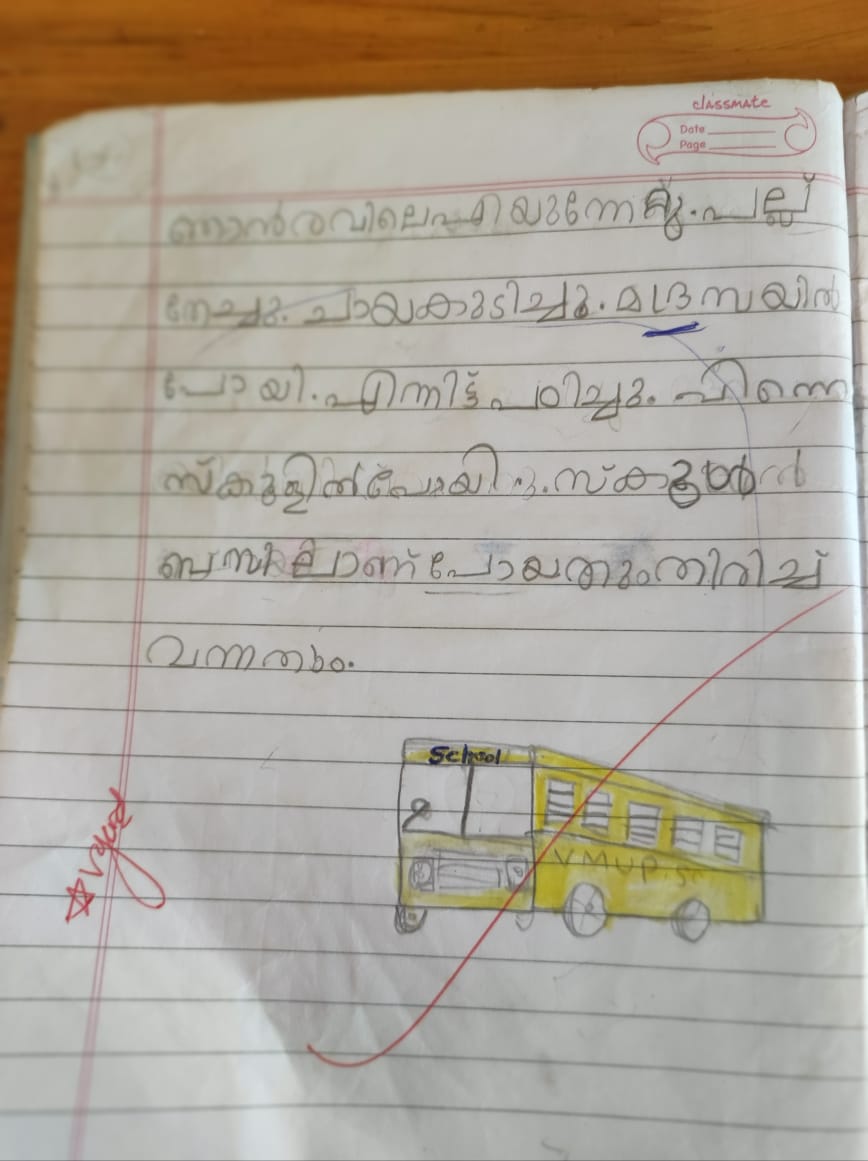 classmate
Date
Page
ഞാൻ രാവിലെ എഴുന്നേറ്റു. പല്ല്
തേച്ചു. ചായ കുടിച്ചു. മദ്രസയിൽ
പോയി. എന്നിട്ട് പഠിച്ചു. പിന്നെ
സ്കൂളിൽ പോയി. സ്കൂൾ
ബസിലാണ് പോയതും തിരിച്ച്
വന്നതും.
School
VMUP.SC